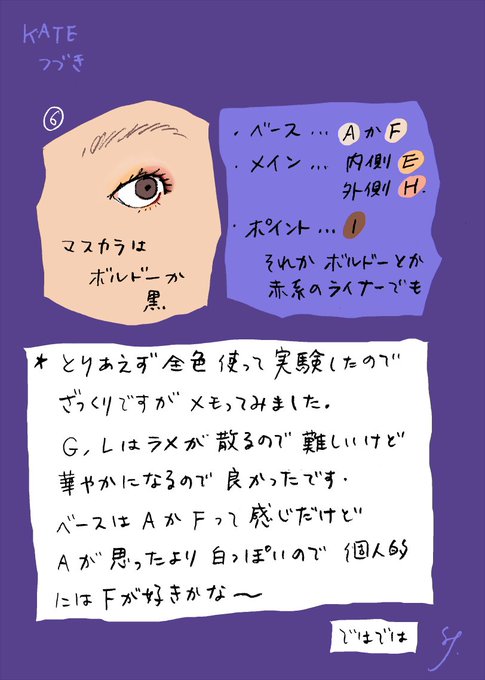 KATE
つづき
⑥
マスカラは
ボルドーか
黒
・ベース… AかF
・メイン… 内側 E
外側 H.
・ポイント… I
それか ボルドーとか
赤系のライナーでも
* とりあえず全色使って実験したので
ざっくりですがメモってみました。
G,Lはラメが散るので難しいけど
華やかになるので良かったです.
ベースはAかFって感じだけど
Aが思ったより白っぽいので個人的
にはFが好きかな〜
ではでは